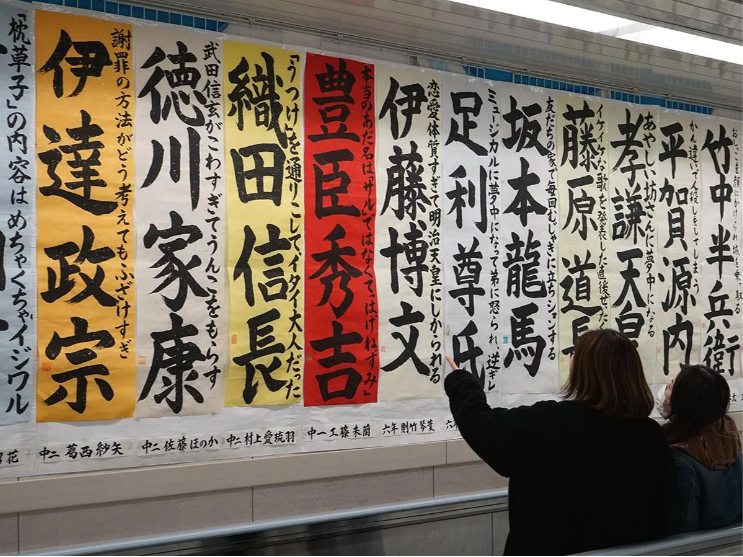 竹中半兵衛
かん違いで人殺しをしてしまう
平賀源内
あやしい坊さんに夢中になる
孝謙天皇
イケイケな歌を発表した直後
藤原道長
友だちの家で毎回むじゃきに立ちションする
坂本龍馬
ミュージカルに夢中になって弟に怒られ、逆ギレ
足利尊氏
恋愛体質すぎて明治天皇にしかられる
伊藤博文
六年 則竹琴
本当のあだ名は「サル」ではなくて「はげねずみ」
豊臣秀吉
中一 工藤未蘭
「うつけ」を通りこしてイタイ大人だった
織田信長
中二 村上愛琉羽
武田信玄がこわすぎてうんこをもらす
徳川家康
中二 佐藤ほのか
謝罪の方法がどう考えてもふざけすぎ
伊達政宗
中二 葛西紗矢
「枕草子」の内容はめちゃくちゃイジワル